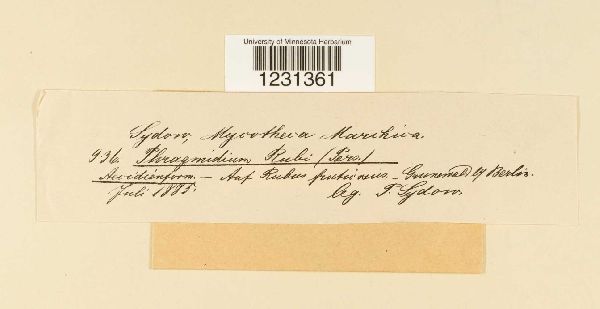 University of Minnesota Herbarium
1231361
Sydow, Mycotheca Marchica.
936. Phragmidium Rubi (Pers.)
Aecidienform. — Auf Rubus fruticosus. — Grunewald b/ Berlin.
Juli 1885. leg. P. Sydow.